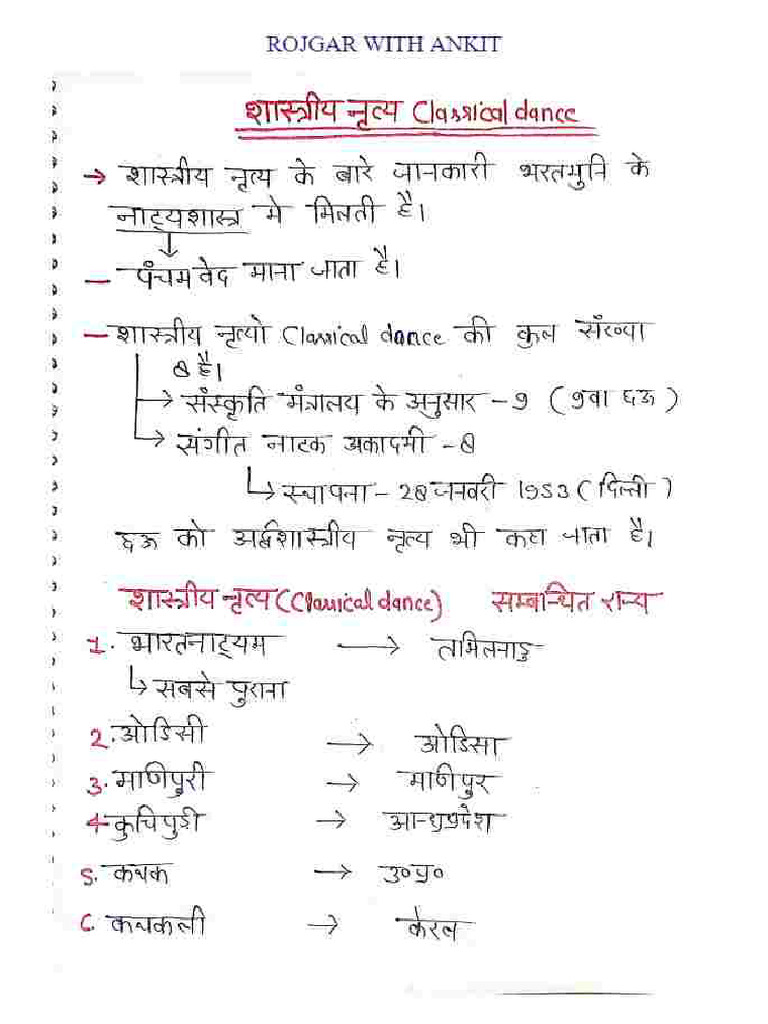 ROJGAR WITH ANKIT
शास्त्रीय नृत्य Classical dance
→ शास्त्रीय नृत्य के बारे जानकारी भरतमुनि के
नाट्यशास्त्र मे मिलती है।
— पंचमवेद माना जाता है।
— शास्त्रीय नृत्यो Classical dance की कुल संख्या
8 है।
→ संस्कृति मंत्रालय के अनुसार - 9 (9वा छऊ)
→ संगीत नाटक अकादमी - 8
→ स्थापना - 28 जनवरी 1953 (दिल्ली)
छऊ को अर्द्धशास्त्रीय नृत्य भी कहा जाता है।
शास्त्रीय नृत्य (Classical dance) सम्बान्धित राज्य
1. भारतनाट्यम → तमिलनाडु
↳ सबसे पुराना
2. ओडिसी → ओडिसा
3. माणिपुरी → माणिपुर
4- कुचिपुडी → आन्ध्रप्रदेश
5. कथक → उ०प्र०
6. कथकली → केरल